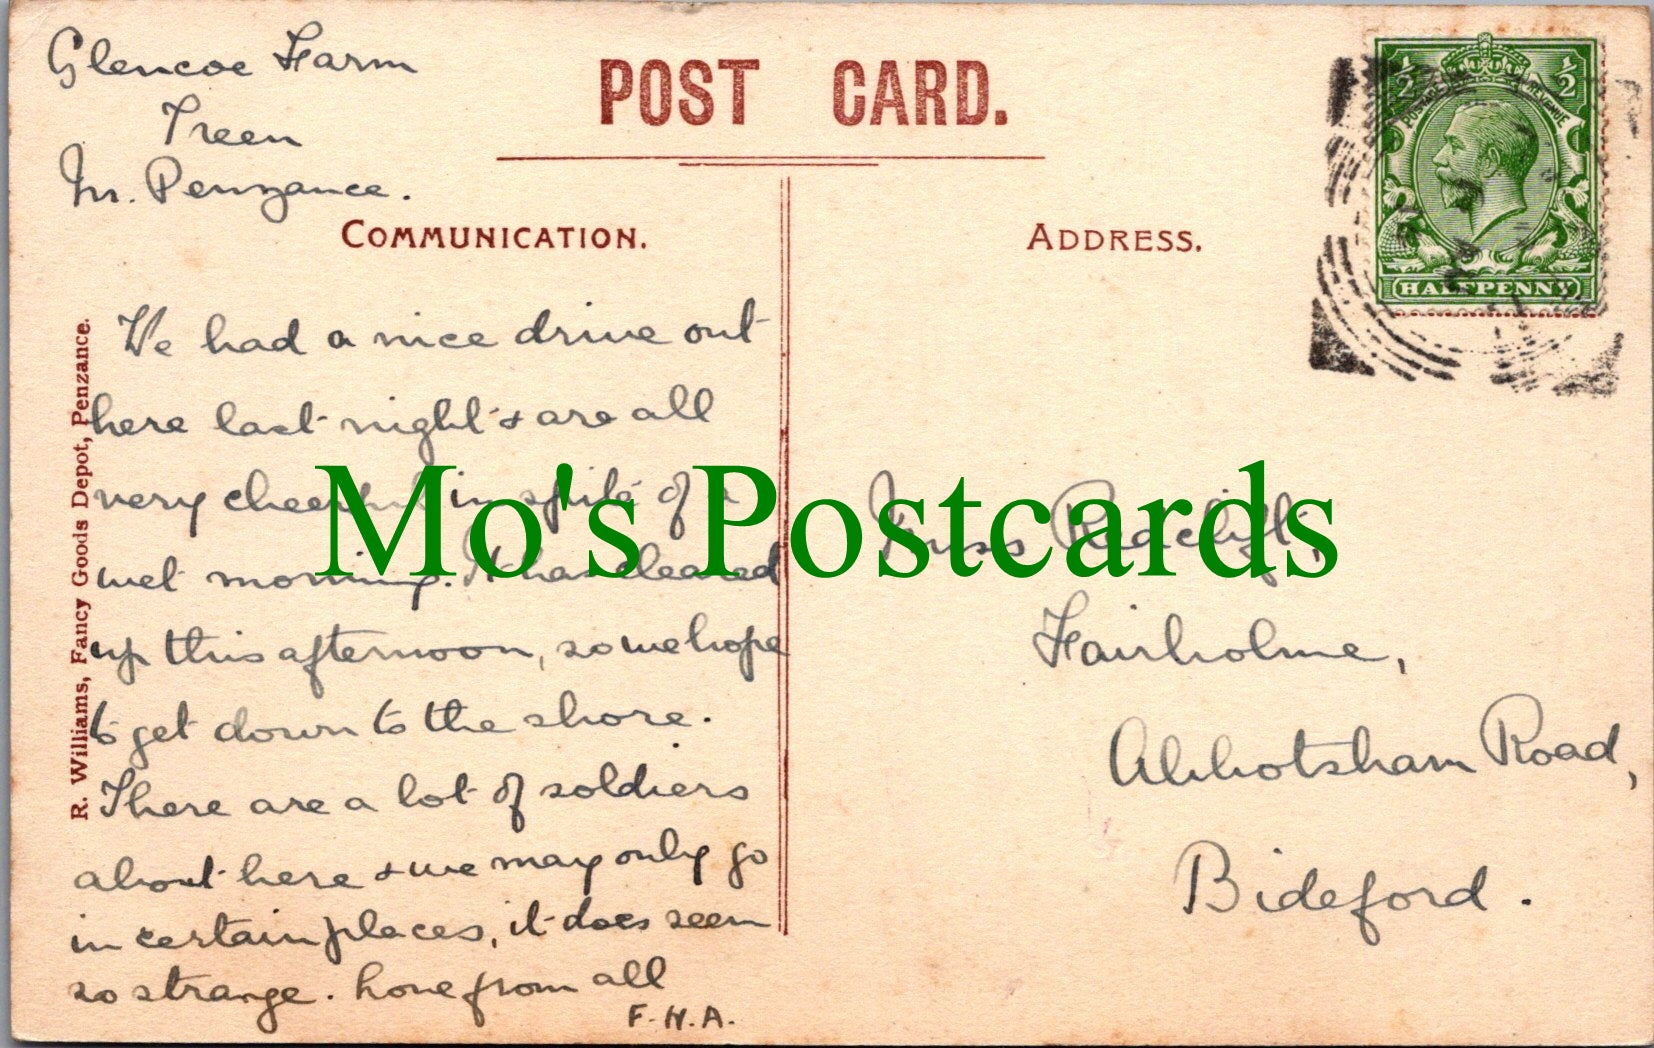 Glencoe Farm
Treen
Nr. Penzance.
POST CARD.
COMMUNICATION.
ADDRESS.
½ ½
POSTAGE REVENUE
HALFPENNY
We had a nice drive out
here last night & are all
very cheerful in spite of a
wet morning. It has cleared
up this afternoon, so we hope
to get down to the shore.
There are a lot of soldiers
about here & we may only go
in certain places, it does seem
so strange. Love from all
F.H.A.
R. Williams, Fancy Goods Depot, Penzance.
Mo's Postcards
Miss Redclift,
Fairholme,
Abbotsham Road,
Bideford.